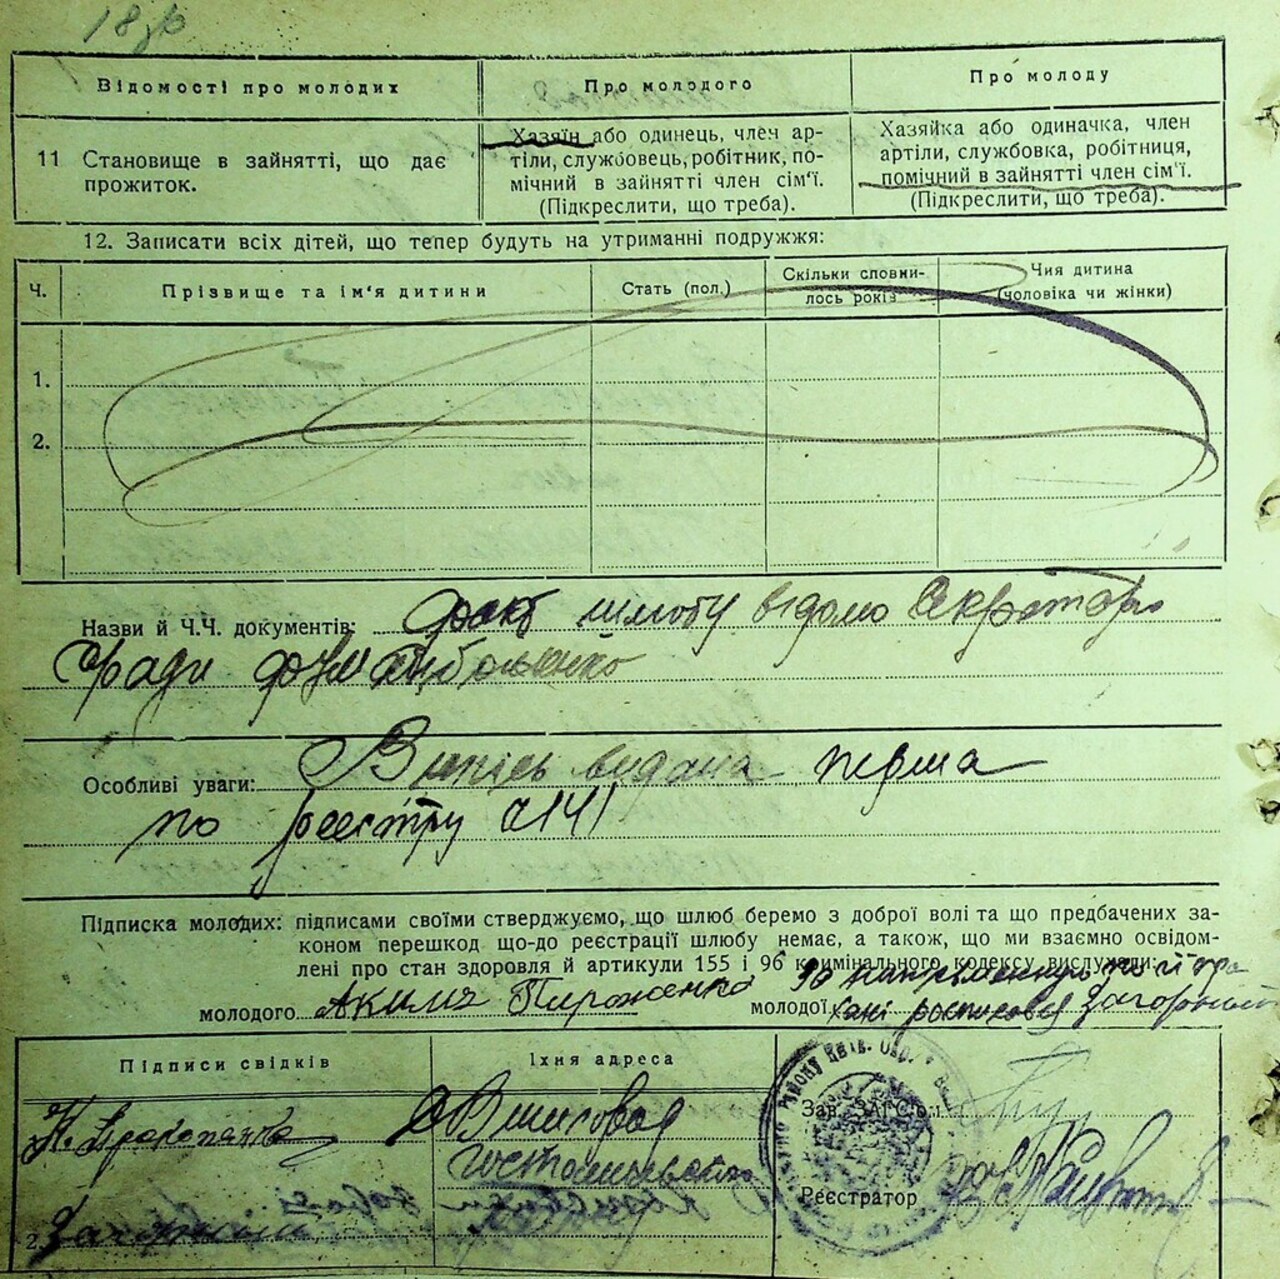 18 зв
Відомості про молодих
Про молодого
Про молоду
11 Становище в зайнятті, що дає
прожиток.
Хазяїн або одинець, член ар-
тіли, службовець, робітник, по-
мічний в зайнятті член сім'ї.
(Підкреслити, що треба).
Хазяйка або одиначка, член
артіли, службовка, робітниця,
помічний в зайнятті член сім'ї.
(Підкреслити, що треба).
12. Записати всіх дітей, що тепер будуть на утриманні подружжя:
Ч.
Прізвище та ім'я дитини
Стать (пол.)
Скільки сповни-
лось років
Чия дитина
(чоловіка чи жінки)
1.
2.
Назви й Ч.Ч. документів: факт шлюбу відомо Секретарю
Сради
Особливі уваги: Випісь видана перша
по реєстру 141
Підписка молодих: підписами своїми стверджуємо, що шлюб беремо з доброї волі та що предбачених за-
коном перешкод що-до реєстрації шлюбу немає, а також, що ми взаємно освідом-
лені про стан здоровля й артикули 155 і 96 кримінального кодексу вислухали:
молодого Аким Пироженко
молодої за неписьменную по її про
хані росписовся Загорний
Підписи свідків
Їхня адреса
Н. Прокопенко
2. Загорний
Району Київ. Окр.
Зав. ЗАГС'ом
Реєстратор